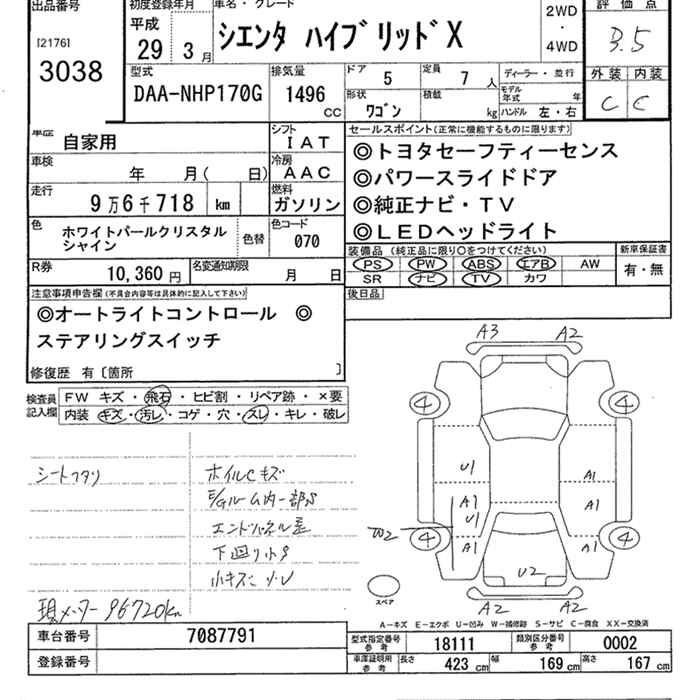 出品番号
[2176]
3038
初度登録年月
平成
29年 3月
車名・グレード
シエンタ ハイブリッド X
2WD
・
4WD
評価点
3.5
外装 内装
C C
型式
DAA-NHP170G
排気量
1496 CC
ドア 5
定員 7 人
形状 ワゴン
積載 kg
ディーラー・並行
モデル年式 年
ハンドル 左・右
車歴 自家用
シフト IAT
車検 年 月( 日)
冷房 AAC
走行 9万6千718 km
燃料 ガソリン
色 ホワイトパールクリスタルシャイン
色替
色コード 070
R券 10,360 円
名変通知期限 月 日
セールスポイント(正常に機能するものに限ります)
◎トヨタセーフティーセンス
◎パワースライドドア
◎純正ナビ・TV
◎LEDヘッドライト
装備品 (純正品に限り○をつけてください)
PS PW ABS エアB AW
SR ナビ TV カワ
新車保証書
有・無
後日品
注意事項申告欄(不具合内容等は具体的に記入して下さい)
◎オートライトコントロール ◎
ステアリングスイッチ
修復歴 有〔箇所 〕
検査員記入欄
FW キズ・飛石・ヒビ割・リペア跡・×要
内装 キズ・汚レ・コゲ・穴・スレ・キレ・破レ
シートヘタリ
ホイルCキズ
E/Gルーム内一部S
エンドパネル歪
下廻り小S
小キズ小U
現メーター 96720km
A3 A2
4 4
U1 A1
A1 A1
U1
W2
4 4
A1 A1
U2
A2 A2
スペア
A-キズ E-エクボ U-凹み W-補修跡 S-サビ C-腐食 XX-交換済
車台番号 7087791
登録番号
型式指定番号 参考 18111
類別区分番号 参考 0002
車庫証明用 参考 長さ 423 cm 幅 169 cm 高さ 167 cm